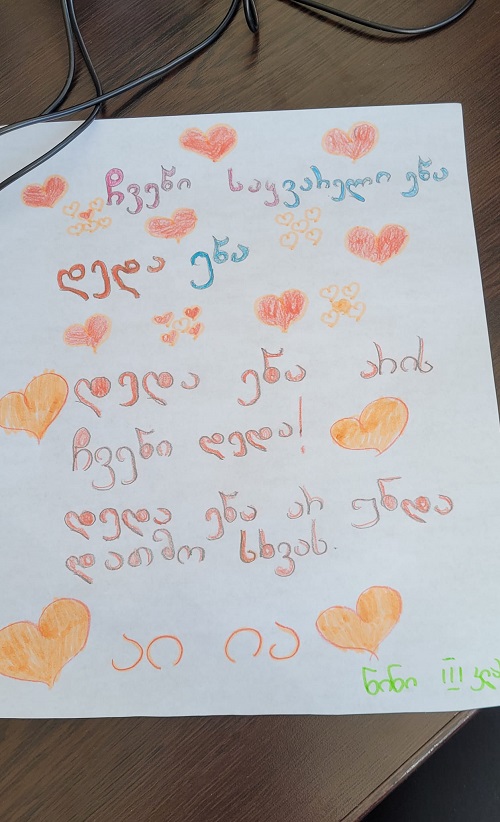 ჩვენი საყვარელი ენა
დედა ენა
დედა ენა არის
ჩვენი დედა!
დედა ენა არ უნდა
დათმო სხვას.
აი ია
ნინი III კლ